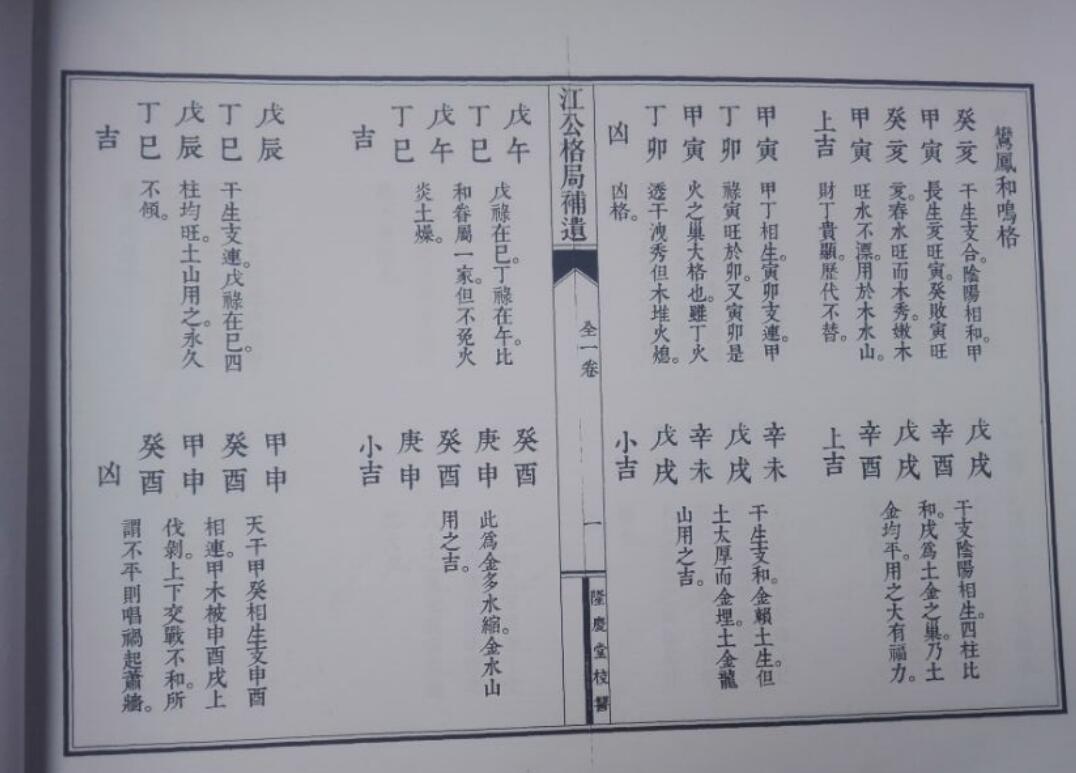 鸞鳳和鳴格
癸亥 干生支合。陰陽相和。甲
甲寅 長生亥旺寅。癸敗寅旺
癸亥 亥。春水旺而木秀。嫩木
甲寅 旺水不漂。用於木水山。
上吉 財丁貴顯。歷代不替。
戊戌 干支陰陽相生。四柱比
辛酉 和。戌為土金之巢。乃土
戊戌 金均平。用之大有福力。
辛酉
上吉
甲寅 甲丁相生。寅卯支連。甲
丁卯 祿寅旺於卯。又寅卯是
甲寅 火之巢大格也。雖丁火
丁卯 透干洩秀但木堆火熄。
凶 凶格。
辛未 干生支和。金賴土生。但
戊戌 土太厚而金埋。土金龍
辛未 山用之吉。
戊戌
小吉
江公格局補遺
全一卷
一
隆慶堂校讐
戊午 戊祿在巳。丁祿在午。比
丁巳 和眷屬一家。但不免火
戊午 炎土燥。
丁巳
吉
癸酉 此為金多水縮。金水山
庚申 用之吉。
癸酉
庚申
小吉
戊辰 干生支連。戊祿在巳。四
丁巳 柱均旺。土山用之。永久
戊辰 不傾。
丁巳
吉
甲申 天干甲癸相生支申酉
癸酉 相連。甲木被申酉戌上
甲申 伐剝。上下交戰不和。所
癸酉 謂不平則唱禍起蕭牆。
凶